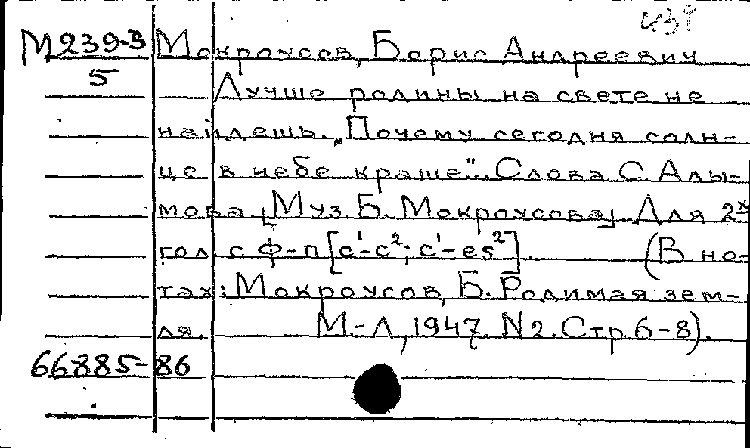 изд
М239-3 Мокроусов, Борис Андреевич
5 Лучше родины на свете не
найдешь. „Почему сегодня солн-
це в небе краше". Слова С. Алы-
мова [Муз. Б. Мокроусова]. Для 2х
гол. с ф-п [c¹-c²; c¹-es²]. (В но-
тах: Мокроусов, Б. Родимая зем-
ля. М-Л, 1947. N2. Стр. 6-8).
66885-86